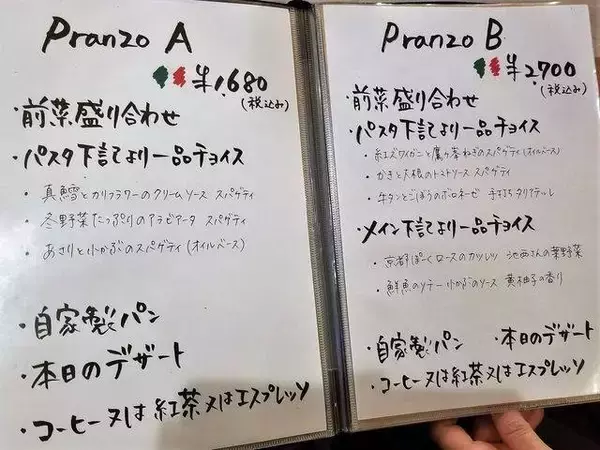 Pranzo A
¥1,680
(税込み)
・前菜盛り合わせ
・パスタ下記より一品チョイス
・真鱈とカリフラワーのクリームソース スパゲティ
・冬野菜たっぷりのアラビアータ スパゲティ
・あさりと小かぶのスパゲティ(オイルベース)
・自家製パン
・本日のデザート
・コーヒー又は紅茶又はエスプレッソ
Pranzo B
¥2,700
(税込み)
・前菜盛り合わせ
・パスタ下記より一品チョイス
・紅ズワイガニと鷹ヶ峯ねぎのスパゲティ(オイルベース)
・かきと大根のトマトソース スパゲティ
・牛タンとごぼうのボロネーゼ 手打ちタリアテーレ
・メイン下記より一品チョイス
・京都ぽーくロースのカツレツ 池西さんの葉野菜
・鮮魚のソテー 小かぶのソース 黄柚子の香り
・自家製パン ・本日のデザート
・コーヒー又は紅茶又はエスプレッソ